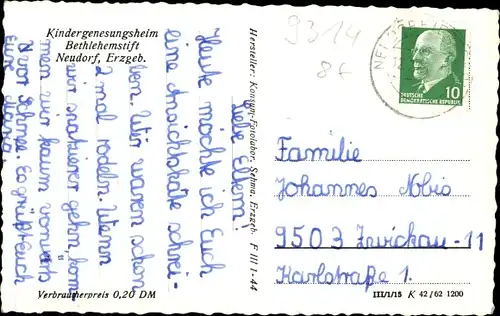 Kindergenesungsheim
Bethlehemstift
Neudorf, Erzgeb.
9314
86
Liebe Eltern!
Heute möchte ich Euch
eine Ansichtskarte schrei-
ben. Wir waren schon
2 mal rodeln. Wenn
wir spazieren gehn, kom-
men wir kaum vorwärts
vor Schnee. Es grüßt Euch
Eure
Verbraucherpreis 0,20 DM
Hersteller: Konsum-Fotolabor, Sehma, Erzgeb. F III 1-44
10
DEUTSCHE
DEMOKRATISCHE REPUBLIK
Familie
Johannes Nobis
9503 Zwickau-11
Karlstraße 1.
III/1/15 K 42/62 1200